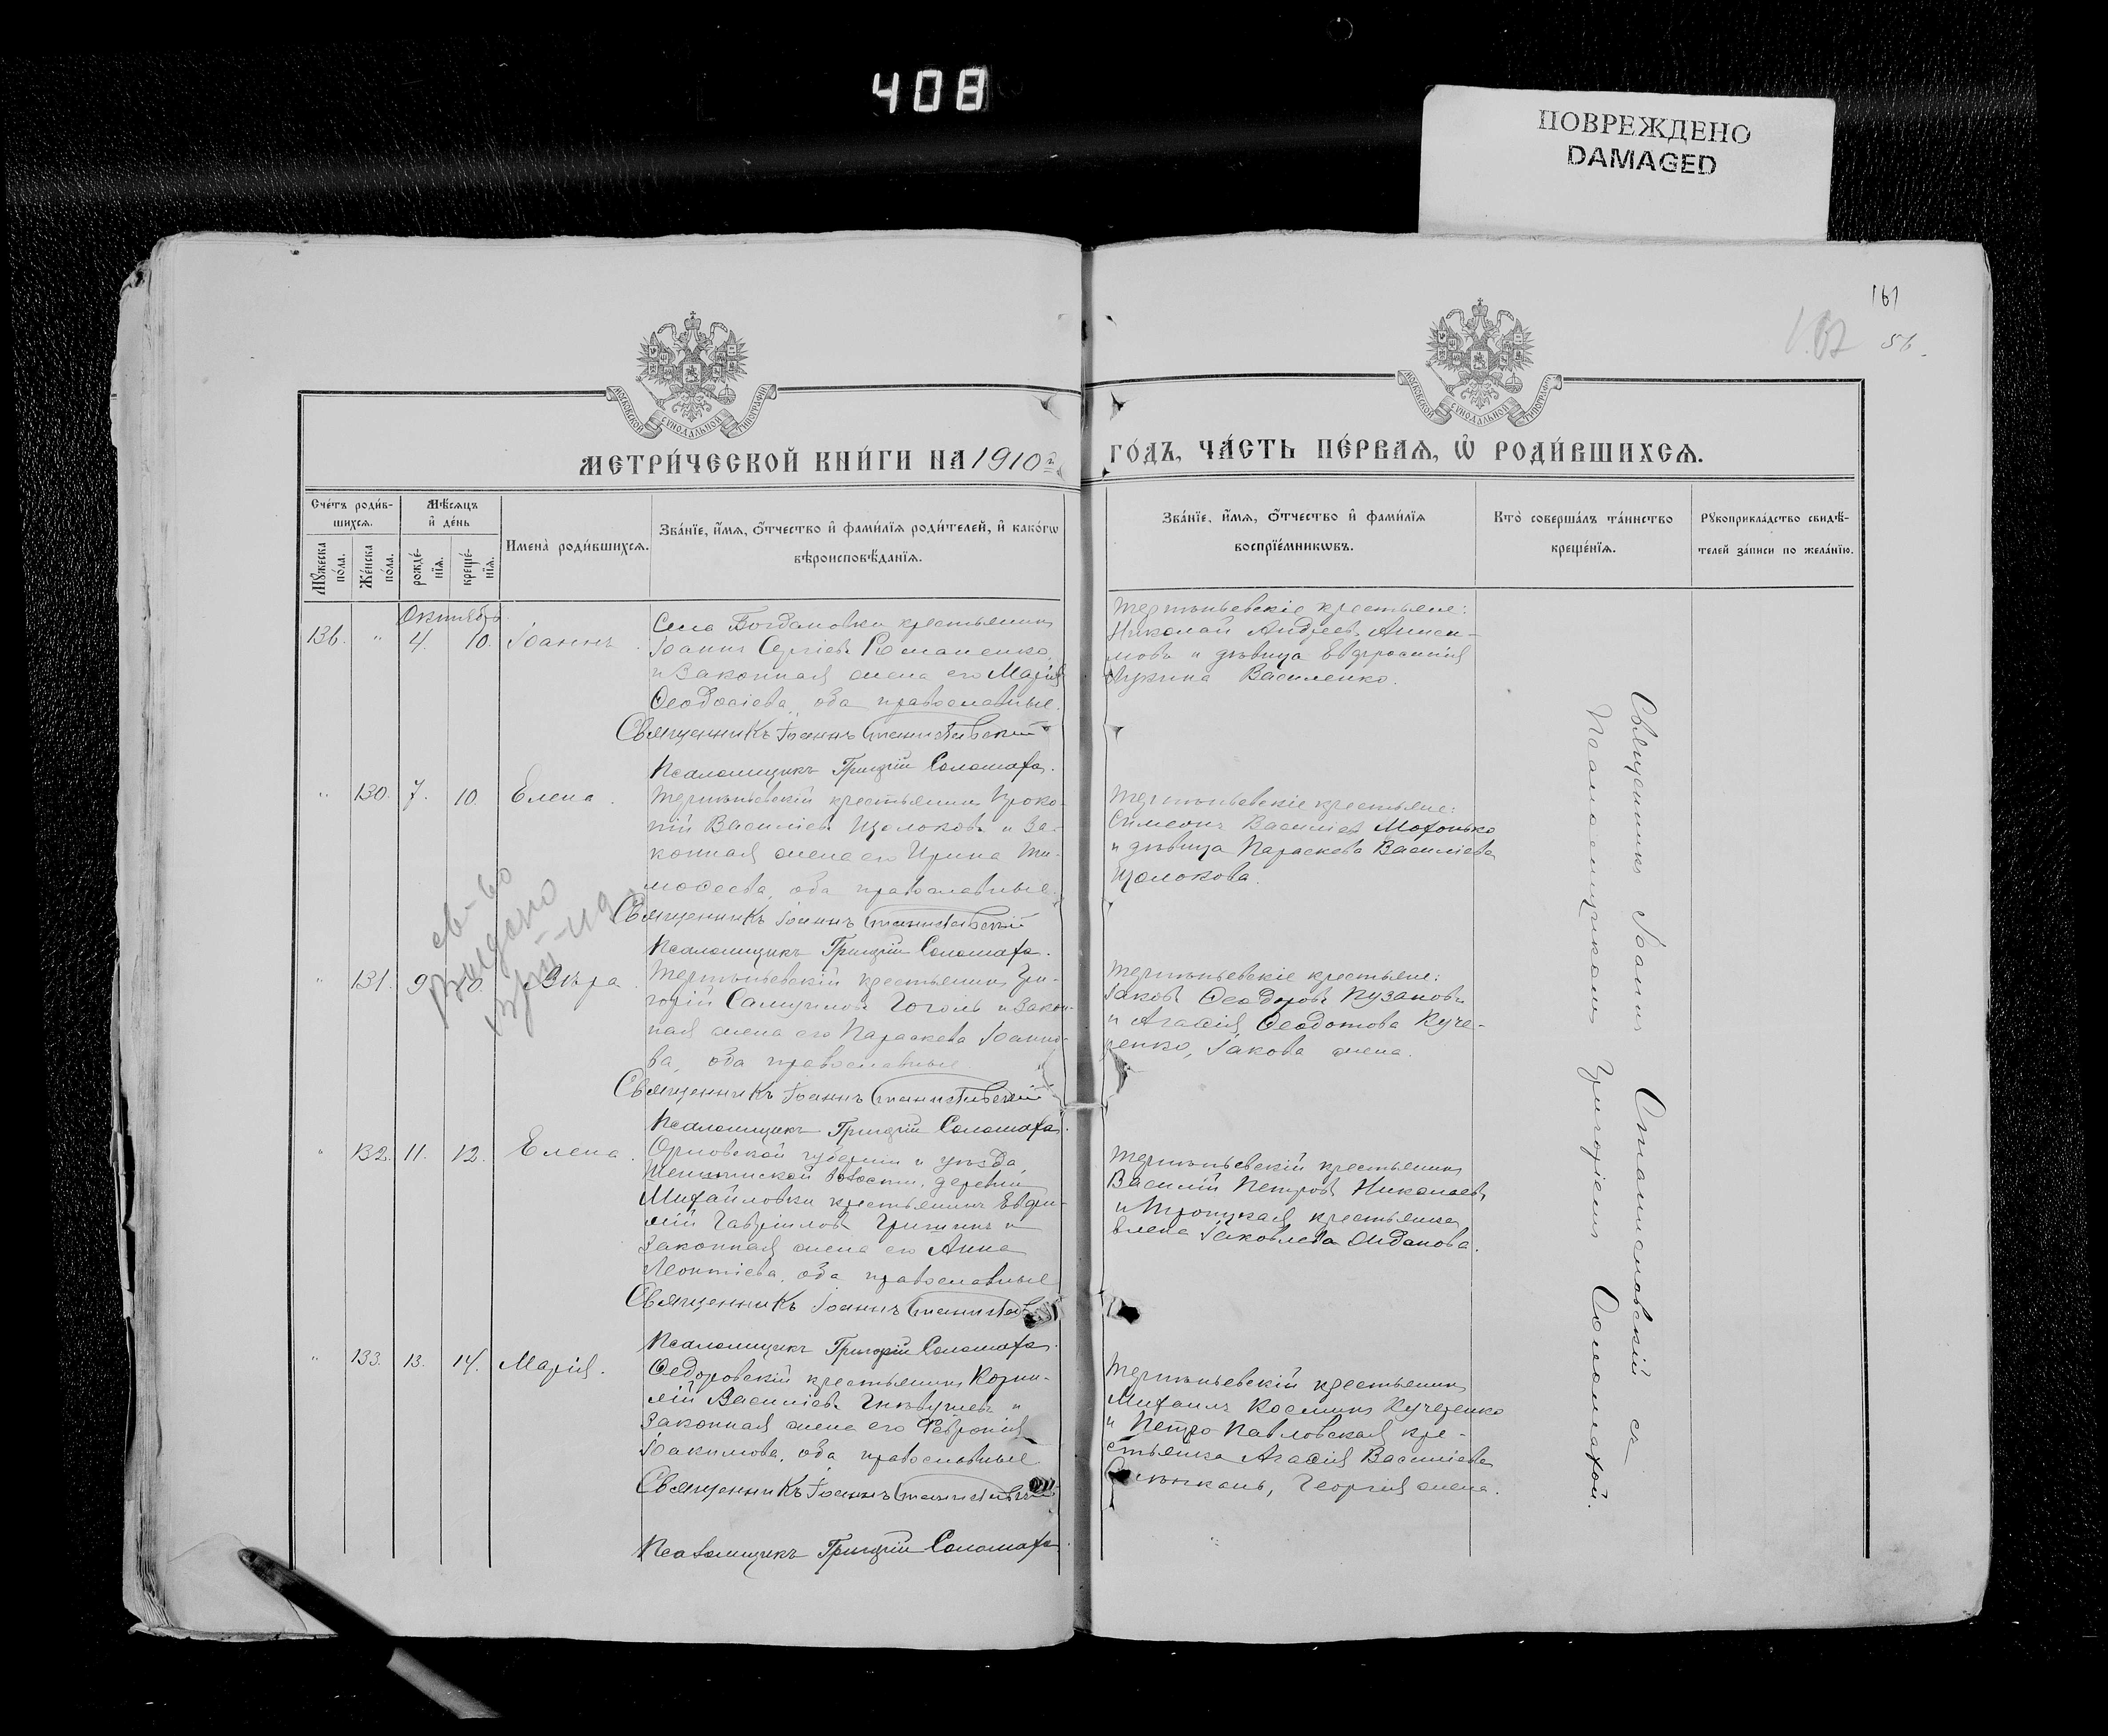 408
ПОВРЕЖДЕНО
DAMAGED
161
56.
МОСКОВСКОЙ СѴНОДАЛЬНОЙ ТИПОГРАФІИ
МОСКОВСКОЙ СѴНОДАЛЬНОЙ ТИПОГРАФІИ
МЕТРИ́ЧЕСКОЙ КНИ́ГИ НА 1910 г.
ГО́ДЪ, ЧА́СТЬ ПЕ́РВАѦ, Ѽ РОДИ́ВШИХСѦ.
Сче́тъ роди́в-
шихсѧ.
Мꙋ́жеска по́ла.
Же́нска по́ла.
Мѣ́сѧцъ
и҆ де́нь
рожде́-
нїѧ.
креще́-
нїѧ.
И҆мена̀ роди́вшихсѧ.
Зва́нїе, и҆́мѧ, ѻ҆́тчество и҆ фами́лїѧ роди́телей, и҆ како́гѡ
вѣроисповѣ́данїѧ.
Зва́нїе, и҆́мѧ, ѻ҆́тчество и҆ фами́лїѧ
воспрїе́мникѡвъ.
Кто̀ соверша́лъ та́инство
креще́нїѧ.
Рꙋкоприкла́дство свидѣ́-
телей за́писи по жела́нїю.
Октябрь
136. " 4. 10. Іоаннъ.
Села Богдановки крестьянинъ
Іоаннъ Сергіевъ Романенко
и законная жена его Марія
Ѳеодосіева, оба православные.
Священникъ Іоаннъ Станиславскій
Псаломщикъ Григорій Соломаха.
Терпѣньевскіе крестьяне:
Николай Андреевъ Аниси-
мовъ и дѣвица Евфросинія
Лукина Василенко.
" 130. 7. 10. Елена.
Терпѣньевскій крестьянинъ Проко-
пій Василіевъ Щолоковъ и за-
конная жена его Ирина Ти-
моѳеева, оба православные.
Священникъ Іоаннъ Станиславскій
Псаломщикъ Григорій Соломаха.
Терпѣньевскіе крестьяне:
Симеонъ Василіевъ Мохонько
и дѣвица Параскева Василіева
Щолокова.
св-во
Выдано
" 131. 9. 10. Вѣра.
Терпѣньевскій крестьянинъ Гри-
горій Самуиловъ Гоголь и закон-
ная жена его Параскева Іоанно-
ва, оба православные.
Священникъ Іоаннъ Станиславскій
Псаломщикъ Григорій Соломаха.
Терпѣньевскіе крестьяне:
Іаковъ Ѳеодоровъ Пузановъ
и Агаѳія Ѳеодотова Куче-
ренко, Іакова жена.
" 132. 11. 12. Елена.
Орловской губерніи и уѣзда,
волости, деревни
Михайловки крестьянинъ Евѳи-
мій Гавріиловъ Гришинъ и
законная жена его Анна
Леонтіева, оба православные
Священникъ Іоаннъ Станислав
Псаломщикъ Григорій Соломаха.
Терпѣньевскій крестьянинъ
Василій Петровъ Николаевъ
и Троицкая крестьянка
Елена Іаковлева
" 133. 13. 14. Марія.
Ѳедоровскій крестьянинъ Корни-
лій Василіевъ и
законная жена его Февронія
Іоакимова, оба православные
Священникъ Іоаннъ Станиславскій
Псаломщикъ Григорій Соломаха
Терпѣньевскій крестьянинъ
Михаилъ Косминъ Кучеренко
и Петро-Павловская кре-
стьянка Агаѳія Василіева
Георгія жена.
Священникъ Іоаннъ Станиславскій съ
Псаломщикомъ Григоріемъ Соломахой.